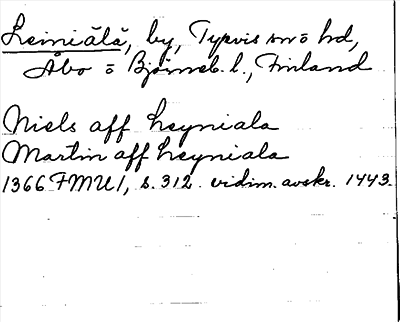 Leiniälä, by, Tyrvis sn o hd,
Åbo o Björneb. l., Finland
Niels aff heyniala
Martin aff heyniala
1366 FMU 1, s. 312. vidim. avskr. 1443.